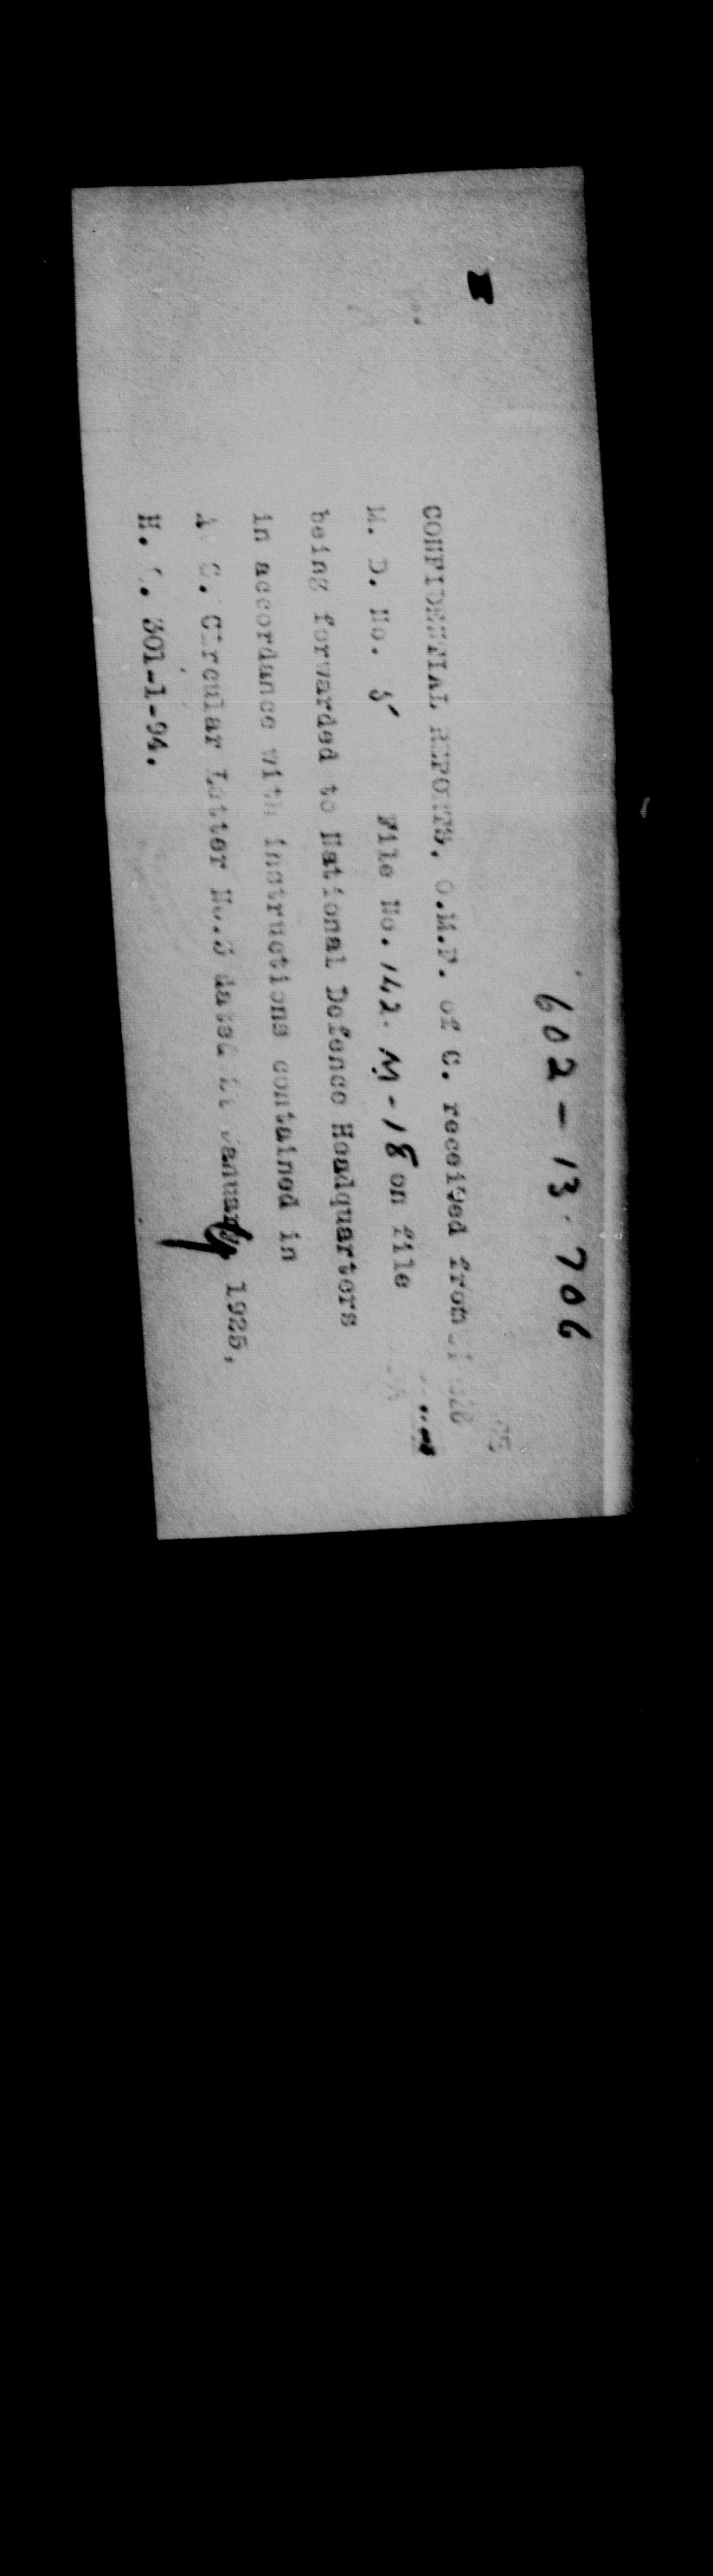 602-13-706
CONFIDENTIAL REPORTS, O.M.F. of C. received from
M. D. No. 5 File No. 142. M-18 on file
being forwarded to National Defence Headquarters
in accordance with instructions contained in
A. G. Circular Letter No. dated January, 1925,
H. 301-1-94.